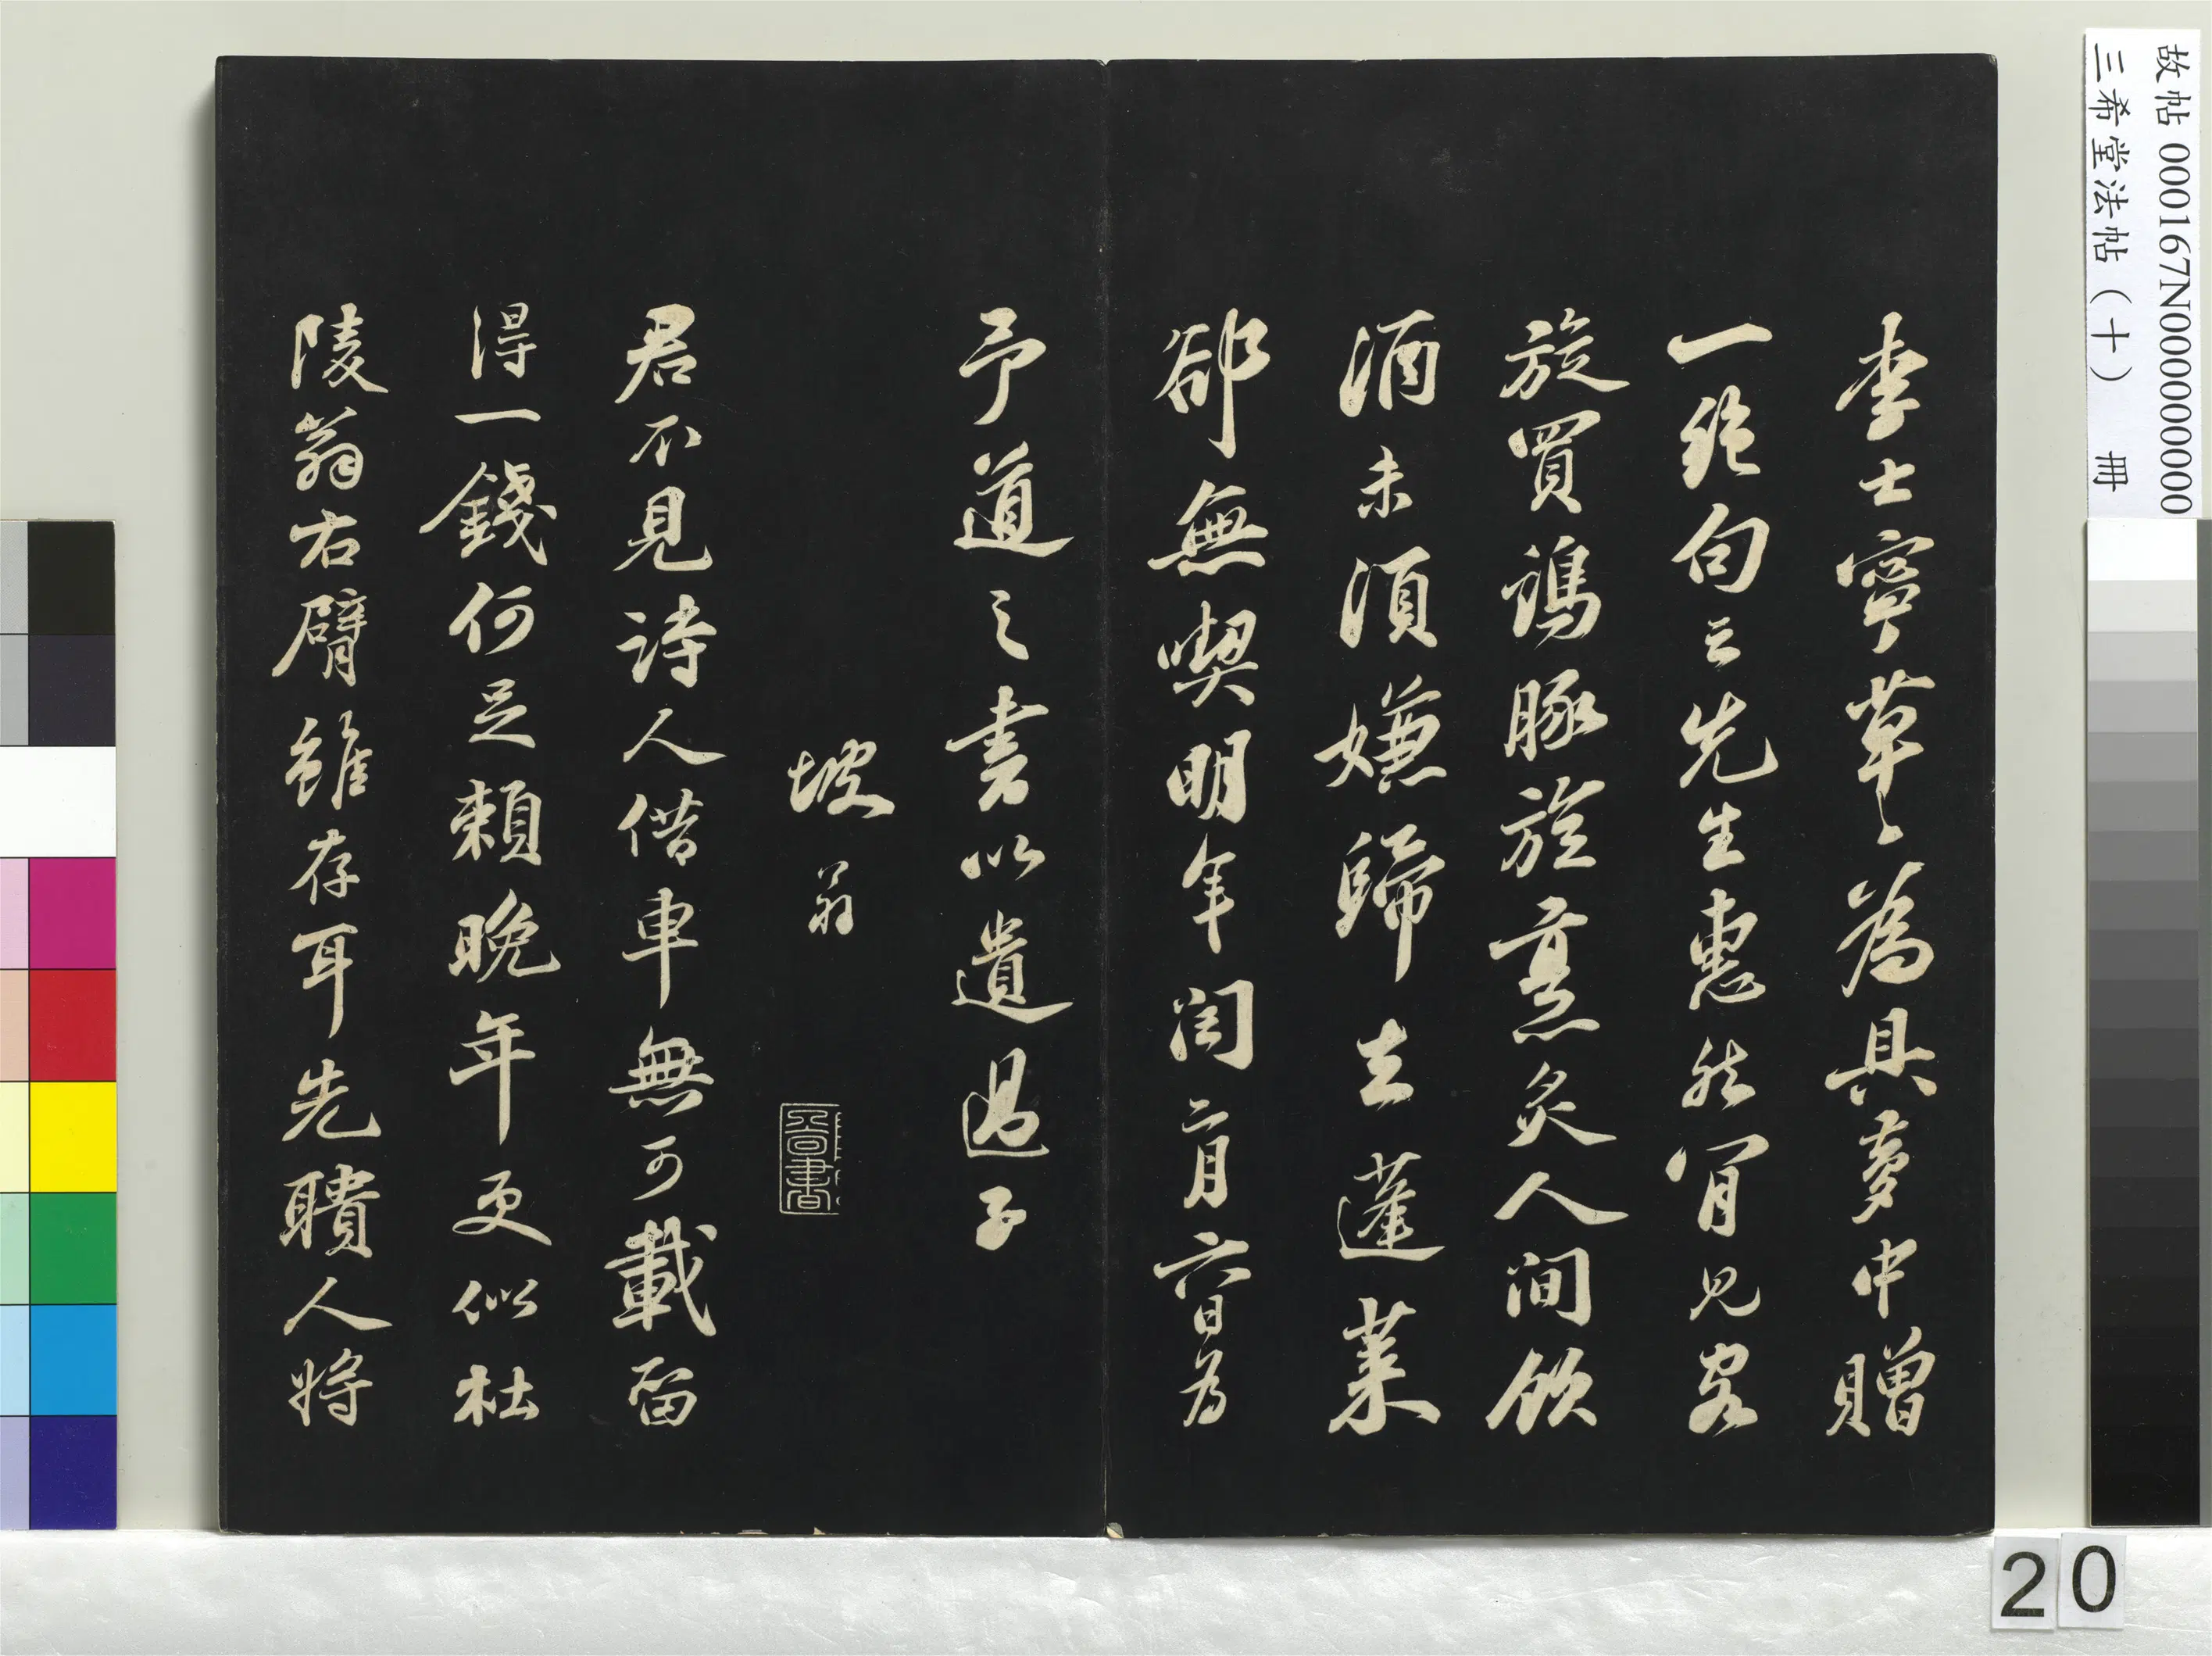 李士寧草草為具夢中贈
一絕句云先生惠然肯見客
旋買鷄豚旋烹炙人間飲
酒未須嫌歸去蓬萊
卻無喫明年閏二月六日為
予道之書以遺過子
坡翁
君不見詩人借車無可載留
得一錢何足賴晚年更似杜
陵翁右臂雖存耳先聵人將
故帖 000167N000000000
三希堂法帖（十） 冊
20